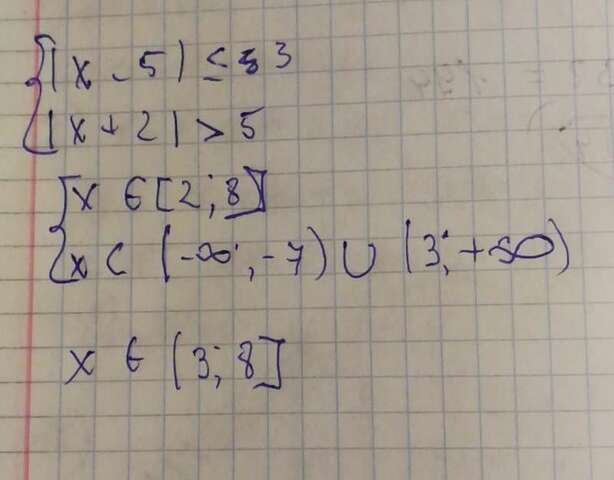 {|x - 5| ≤ 3
|x + 2| > 5
{x ∈ [2; 8]
x ∈ (-∞; -7) ∪ (3; +∞)
x ∈ (3; 8]